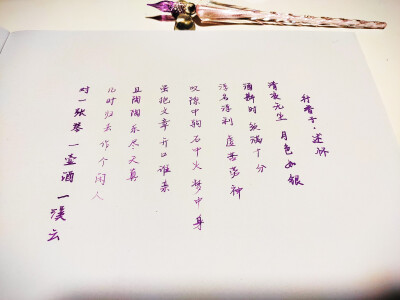 行香子·述怀
清夜无尘 月色如银
酒斟时 须满十分
浮名浮利 虚苦劳神
叹隙中驹 石中火 梦中身
虽抱文章 开口谁亲
且陶陶乐尽天真
几时归去 作个闲人
对一张琴 一壶酒 一溪云